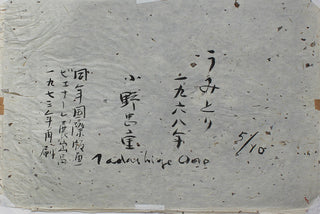 うみとり
一九六八年
5/10
小野忠重
Tadashige Ono
同年国際版画
ビエナーレ展出品
一九七三年再刷